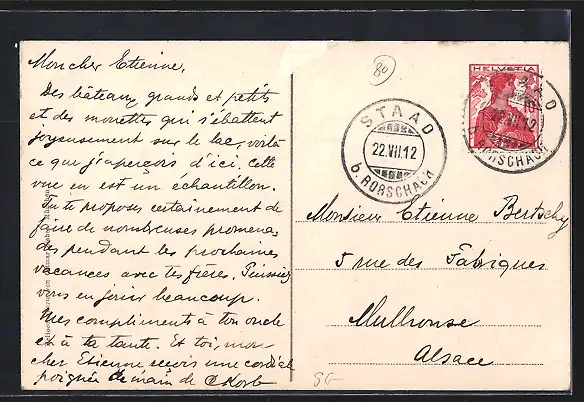 Mon cher Etienne,
Des bâteaux grands et petits
et des mouettes qui s'ébattent
joyeusement sur le lac, voilà
ce que j'aperçois d'ici. Cette
vue en est un échantillon.
Tu te proposes certainement de
faire de nombreuses promena-
des pendant les prochaines
vacances avec tes frères. Puissiez
vous en jouir beaucoup.
Mes compliments à ton oncle
et à ta tante. Et toi, mon
cher Etienne reçois une cordiale
poignée de main de
80
STAAD
22.VII.12
b. RORSCHACH
HELVETIA
STAAD
22.VII.12
b. RORSCHACH
Monsieur Etienne Bertschy
5 rue des Fabriques
Mulhouse
Alsace
SG